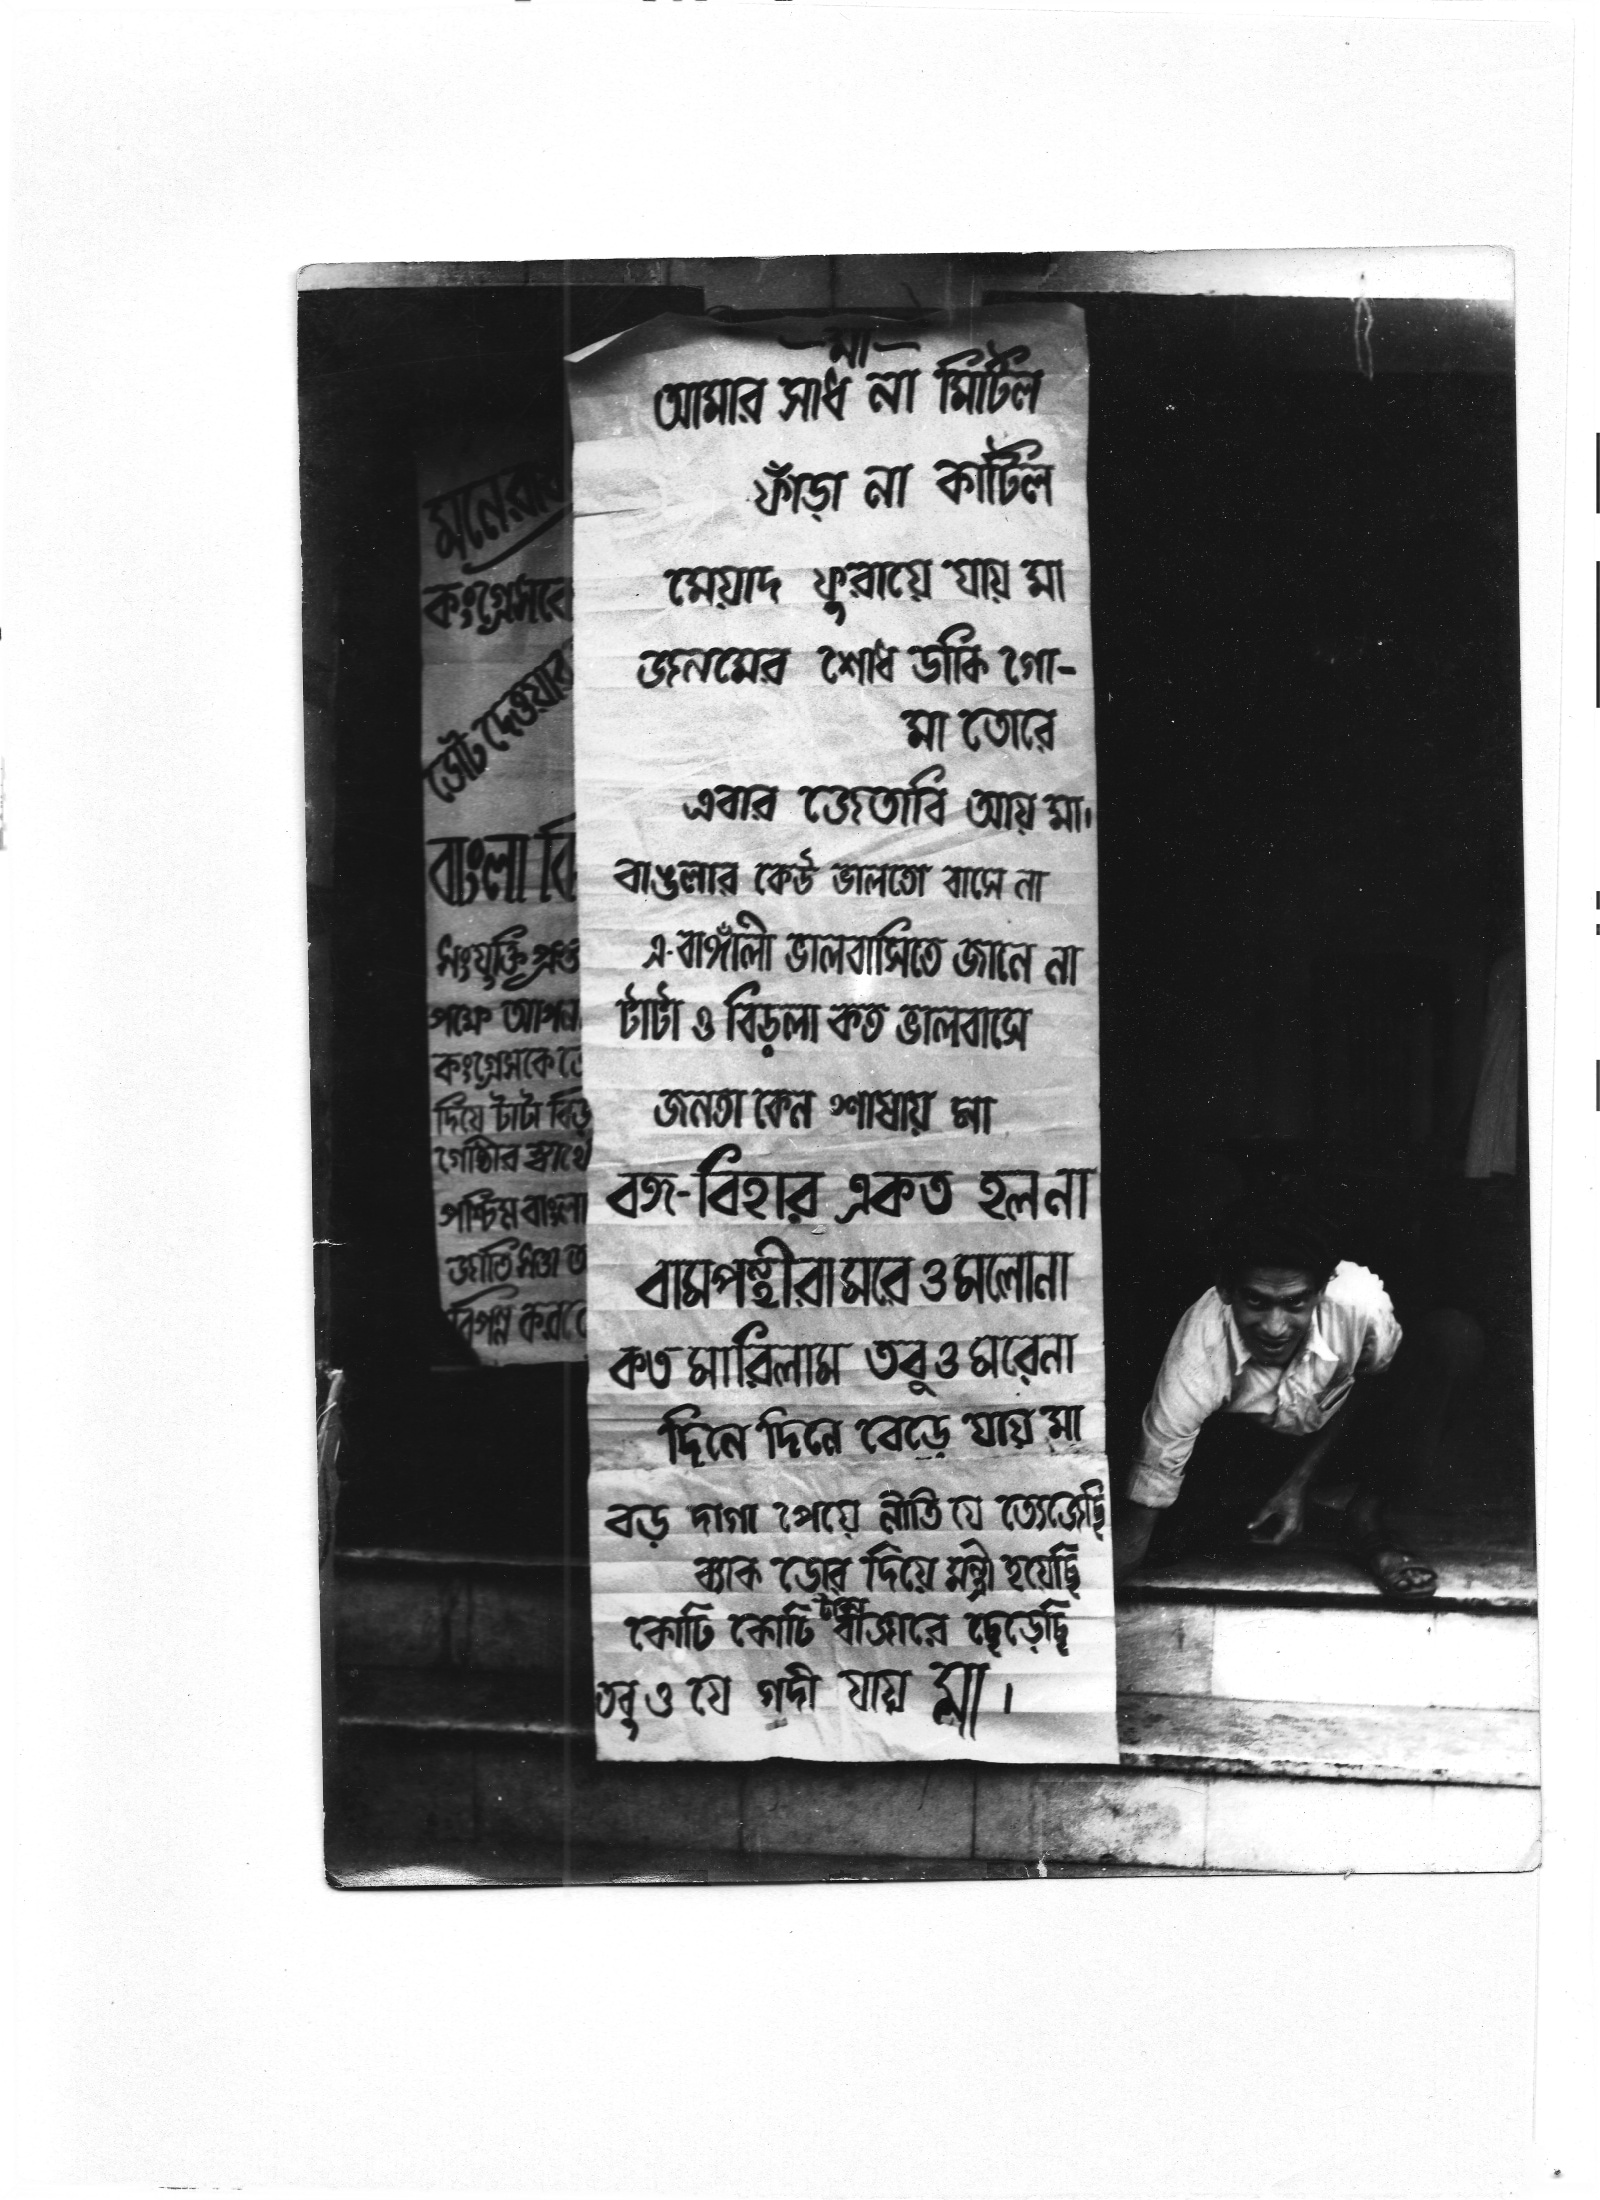 মনে রাখ
কংগ্রেসকে
ভোট দেওয়ার
বাংলা বি
সংযুক্তি প্রস্তা
পক্ষে আপনা
কংগ্রেসকে ভো
দিয়ে টাটা বিড়
গোষ্ঠীর স্বার্থে
পশ্চিম বাংলা
জাতি সত্তা
বিপন্ন করবে
-মা-
আমার সাধ না মিটিল
ফাঁড়া না কাটিল
মেয়াদ ফুরায়ে যায় মা
জনমের শোধ ডাকি গো-
মা তোরে
এবার জেতাবি আয় মা।
বাঙলার কেউ ভালতো বাসে না
এ-বাঙ্গালী ভালবাসিতে জানে না
টাটা ও বিড়লা কত ভালবাসে
জনতা কেন শাষায় মা
বঙ্গ-বিহার একত হলনা
বামপন্থীরা মরেও মলোনা
কত মারিলাম তবুও মরেনা
দিনে দিনে বেড়ে যায় মা
বড় দাগা পেয়ে নীতি যে ত্যেজেছি
ব্যাক ডোর দিয়ে মন্ত্রী হয়েছি
কোটি কোটি টাকা বাজারে ছেড়েছি
তবুও যে গদী যায় মা।